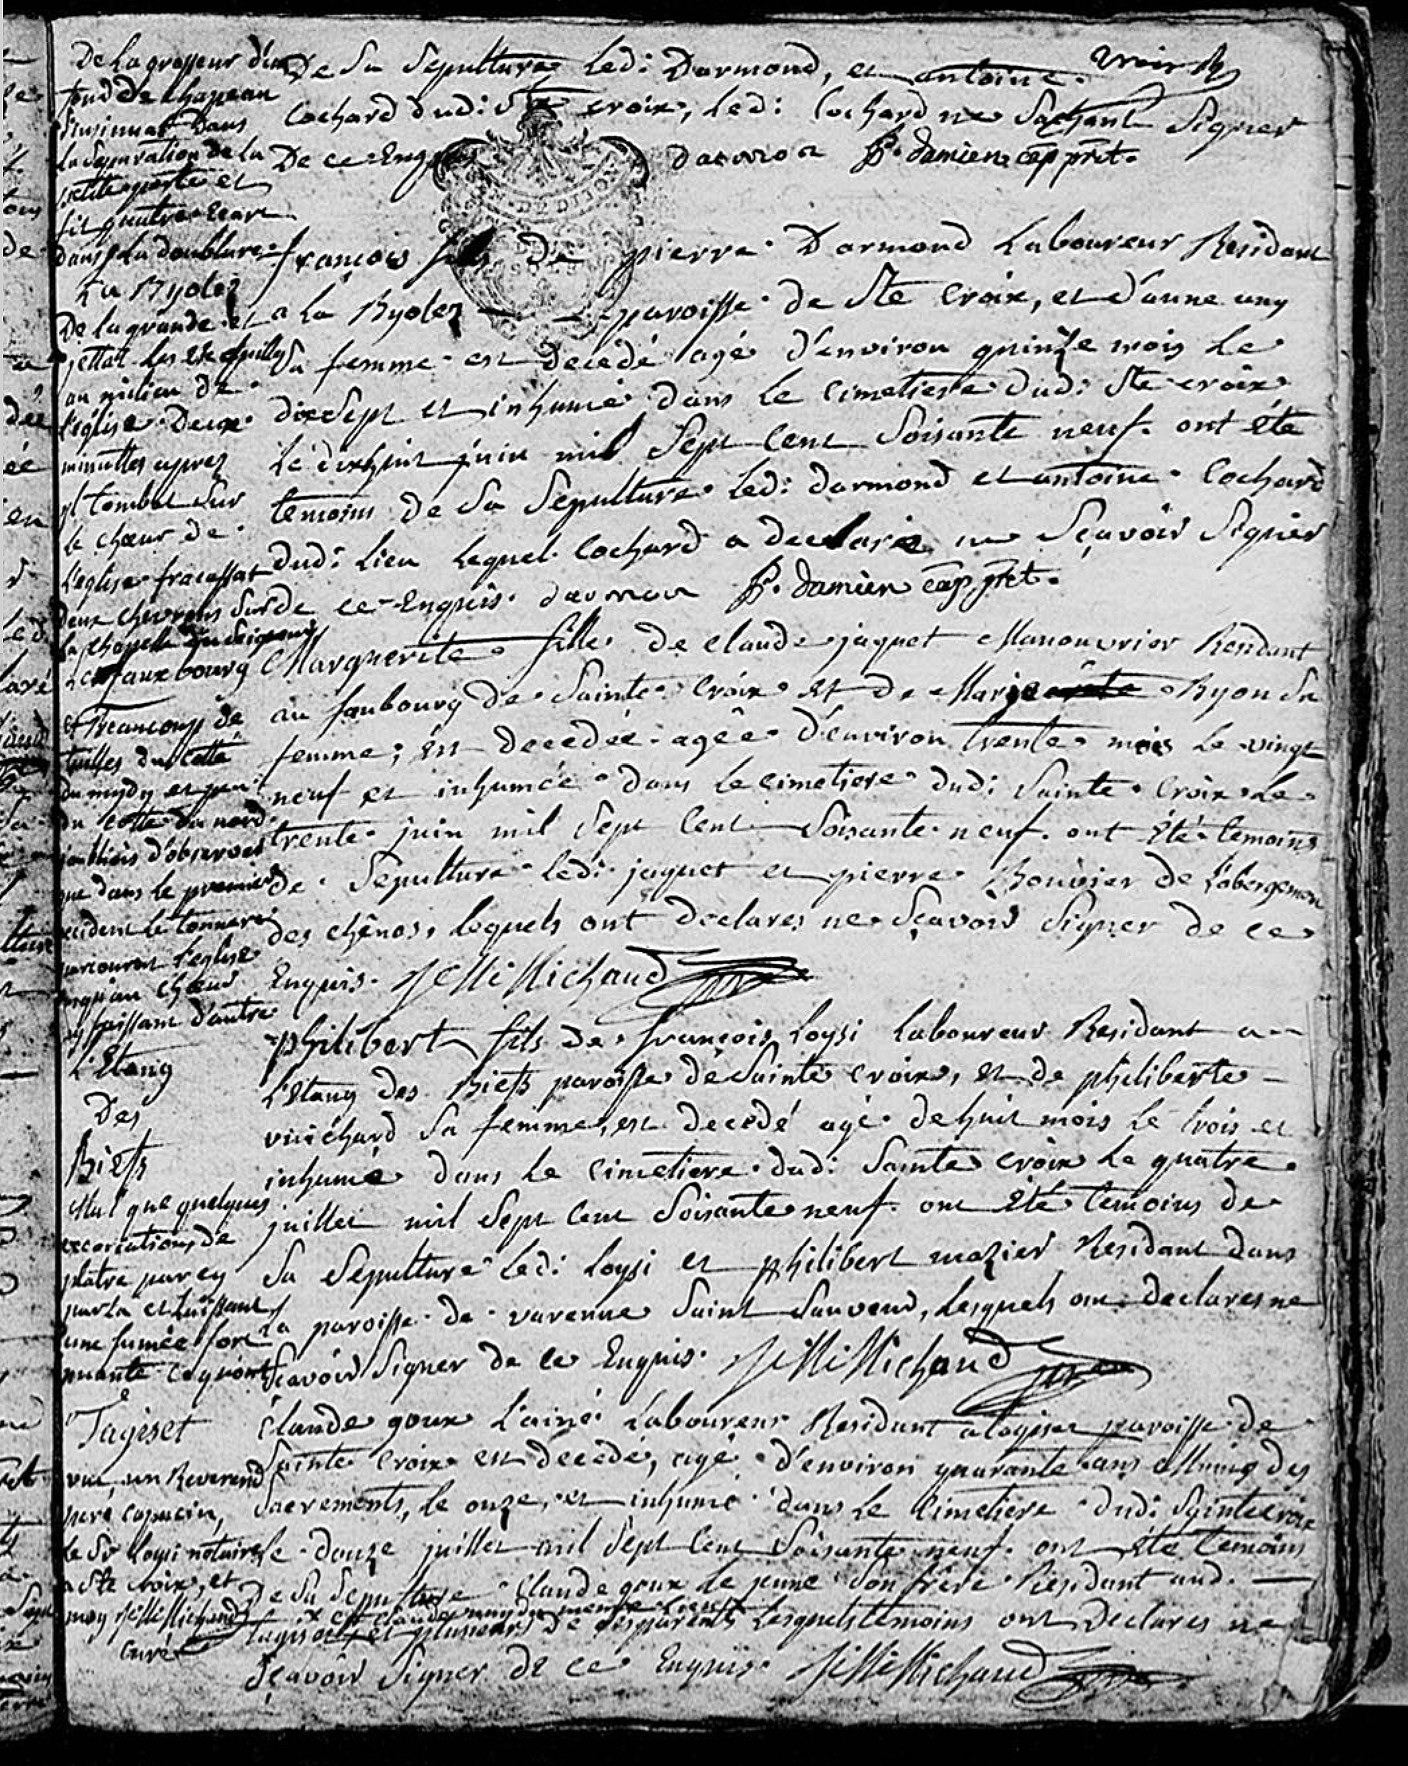 De la grosseur d'un
fond de chapeau
s'insinuat dans
la separation de la
petite porte et
fit quatre ecart
dans la doublure
La Ryolez
De la grande et
jettat les
au milieu de
l'église. Deux
minuttes aprez
yl tombat sur
le chœur de
l'eglise fracassat
deux chevrons sur
la chapelle du seigneur
Le faux bourg
et beaucoup de
tuilles du cotté
du mydy et peu
du cotté du nord
j'oubliois d'observer
que dans le premier
accident le tonnerre
parcourut l'eglise
jusqu'au chœur
n'y faissant d'autre
L'Etang
Des
Biefs
Mal que quelques
excoriations de
platre par cy
par la et laissant
une fumée fort
puante ce qu'ont
Tagiset
vu, un Reverend
pere capucin,
le Sr Loysi notaire
a Ste croix, et
moy Michaud
curé
De Sa Sepulture led: Darmond, et antoine
Cochard dud: Ste croix, led: Cochard ne Sachant Signer
De ce Enquis darmon P. damien cap prêt.
DE DIJON
françois fils de pierre Darmond Laboureur Residant
a la Ryolez paroisse de Ste Croix, et d'anne
Sa femme est decedé agé d'environ quinze mois le
dixsept et inhumé dans le cimetiere dud: Ste croix
le dixhuit juin mil Sept Cent Soisante neuf. ont été
temoins de Sa Sepulture led: darmond et antoine Cochard
dud: lieu lequel Cochard a declaré ne Sçavoir Signer
de ce Enquis. darmon P. damien cap prêt.
Marguerite fille de claude jaquet Manouvrier Residant
au faubourg de Sainte Croix et de Marie Ryon Sa
femme, est decedée agée d'environ trente mois le vingt
neuf et inhumée dans le cimetiere dud: Sainte Croix le
trente juin mil Sept Cent Soisante neuf. ont été temoins
de Sepulture led: jaquet et pierre Bouvier de l'abergement
des chênes, lequels ont declares ne Sçavoir Signer de ce
Enquis. Michaud
philibert fils de françois Loysi Laboureur Residant a
l'Etang des Biefs paroisse de Sainte Croix, et de philiberte
vuichard Sa femme, est decedé agé de huit mois le trois et
inhumé dans le cimetiere dud: Sainte Croix le quatre
juillet mil Sept Cent Soisante neuf. ont été temoins de
Sa Sepulture led: Loysi et philibert mazier Residant dans
la paroisse de varenne Saint Sauveur, lesquels ont declares ne
Sçavoir Signer de ce Enquis. Michaud
Claude goux l'ainé Laboureur Residant a tagiset paroisse de
Sainte Croix est decedé, agé d'environ quarante ans Muny des
Sacrements, le onze, et inhumé dans le cimetiere dud: Sainte croix
le douze juillet mil Sept Cent Soisante neuf. ont été temoins
de Sa Sepulture Claude goux le jeune Son frere Residant aud.
tagiset et plusieurs de ses parents lesquels temoins ont declares ne
Sçavoir Signer de ce Enquis. Michaud